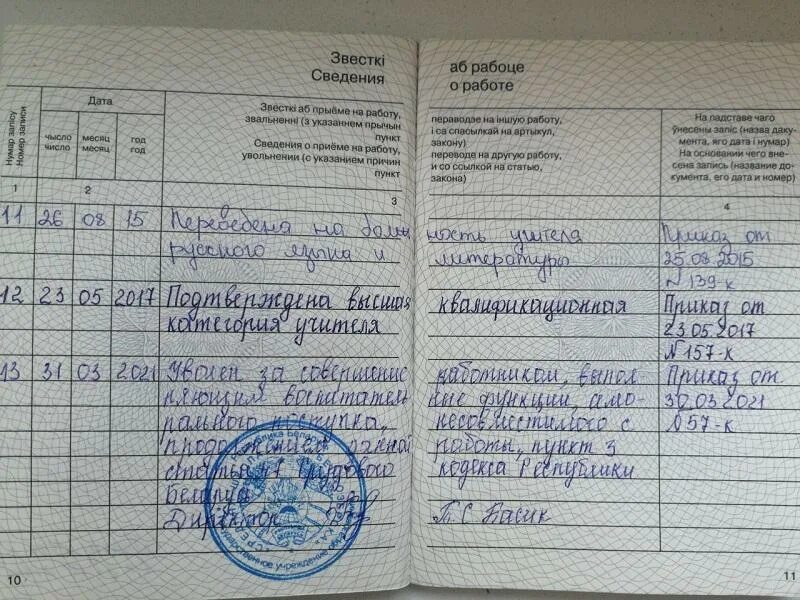 Звесткі
Сведения
аб рабоце
о работе
Нумар запісу
Номер записи
Дата
чысло
число
месяц
месяц
год
год
Звесткі аб прыёме на работу,
звальненні (з указаннем прычын
пункт
Сведения о приёме на работу,
увольнении (с указанием причин
пункт
пераводзе на іншую работу,
і са спасылкай на артыкул,
закону)
переводе на другую работу,
и со ссылкой на статью,
закона)
На падставе чаго
ўнесены запіс (назва даку-
мента, яго дата і нумар)
На основании чего вне-
сена запись (название до-
кумента, его дата и номер)
1 2 3 4
11 26 08 15 Переведена на долж ность учителя Приказ от
русского языка и литературы 25.08.2015
N139-к
12 23 05 2017 Подтверждена высшая квалификационная Приказ от
категория учителя 23.05.2017
N157-к
13 31 03 2021 Уволен за совершение работником, выпол- Приказ от
няющим воспитатель ные функции, амо- 30.03.2021
рального проступка, несовместимого с N57-к
продолжением данной работы, пункт 3
статьи 47 Трудового кодекса Республики
Беларусь
Директор Т.С. Басик
10
11